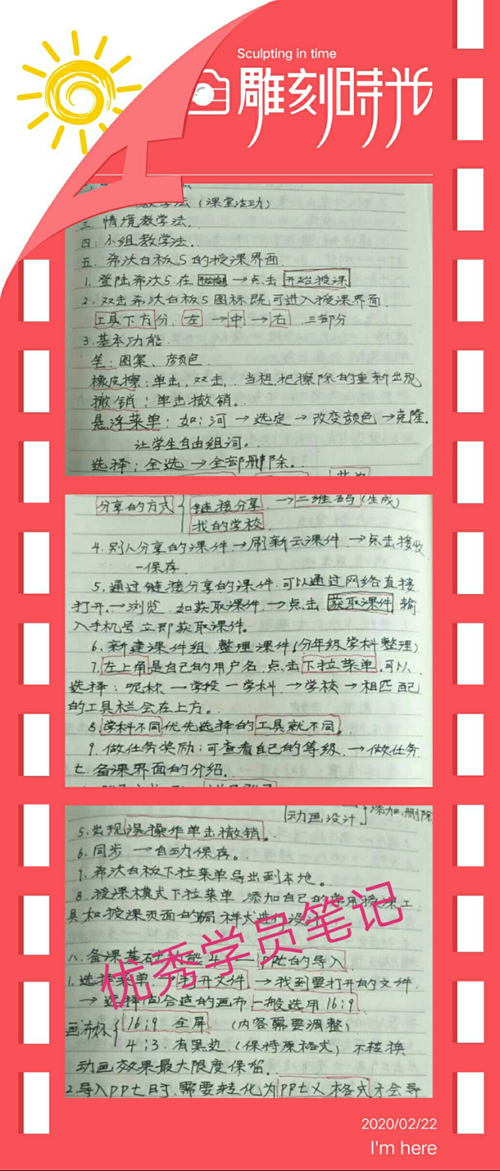 Sculpting in time
雕刻時光
教学法（课堂活动）
三、情境教学法.
四、小组教学法.
五、希沃白板5的授课界面.
1.登陆希沃5.在 →点击 开始授课
2.双击希沃白板5图标既可进入授课界面.
工具下方分. 左 →中 →右 三部分
3.基本功能.
笔：图案、颜色.
橡皮擦：单击，双击. 当想把擦除的重新出现
撤销：单击撤销.
悬浮菜单：如：河 →选定 →改变颜色 →克隆.
让学生自由组词.
选择：全选 →全部删除.
分享的方式 链接分享 →二维码(生成)
我的学校
4.别人分享的课件→刷新云课件 →点击接收
-保存.
5.通过链接分享的课件.可以通过网络直接
打开.一浏览. 如获取课件. →点击 获取课件 输
入手机号立即获取课件.
6.新建课件组，整理课件(分年级学科整理)
7.左上角是自己的用户名.点击下拉菜单.可以
选择：昵称 一学段一学科 →学校 →相匹配
的工具栏会在上方.
8.学科不同优先选择的工具就不同.
9.做任务奖励：可查看自己的等级. →做任务
七.备课界面的介绍.
动画设计 添加.删除
5.出现误操作单击撤销.
6.同步 一自动保存.
7.希沃白板下拉菜单导出到本地.
8.授课模式下拉菜单，添加自己的常用授课工
具和授课页面的
八.备课基础功能 的导入
1.选择菜单 打开文件 →找到要打开的文件
→选择合适的画布 一般选用16:9.
画布 16:9 全屏 (内容需要调整)
4:3.有黑边.(保持原格式) 不替换
动画效果最大限度保留.
2.导入PPt时.需要转化为PPtx格式才会导
优秀学员笔记
2020/02/22
I'm here